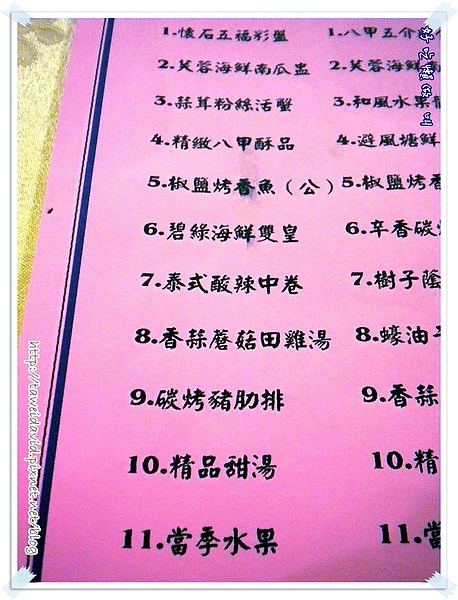 1.懷石五福彩盤
2.芙蓉海鮮南瓜盅
3.蒜茸粉絲活蟹
4.精緻八甲酥品
5.椒鹽烤香魚(公)
6.碧綠海鮮雙皇
7.泰式酸辣中卷
8.香蒜蘑菇田雞湯
9.碳烤豬肋排
10.精品甜湯
11.當季水果
1.八甲五介
2.芙蓉海鮮
3.和風水果
4.避風塘鮮
5.椒鹽烤香
6.辛香碳
7.樹子蔭
8.蠔油
9.香蒜
10.精
11.當
http://taweidavid.pixnet.net/blog